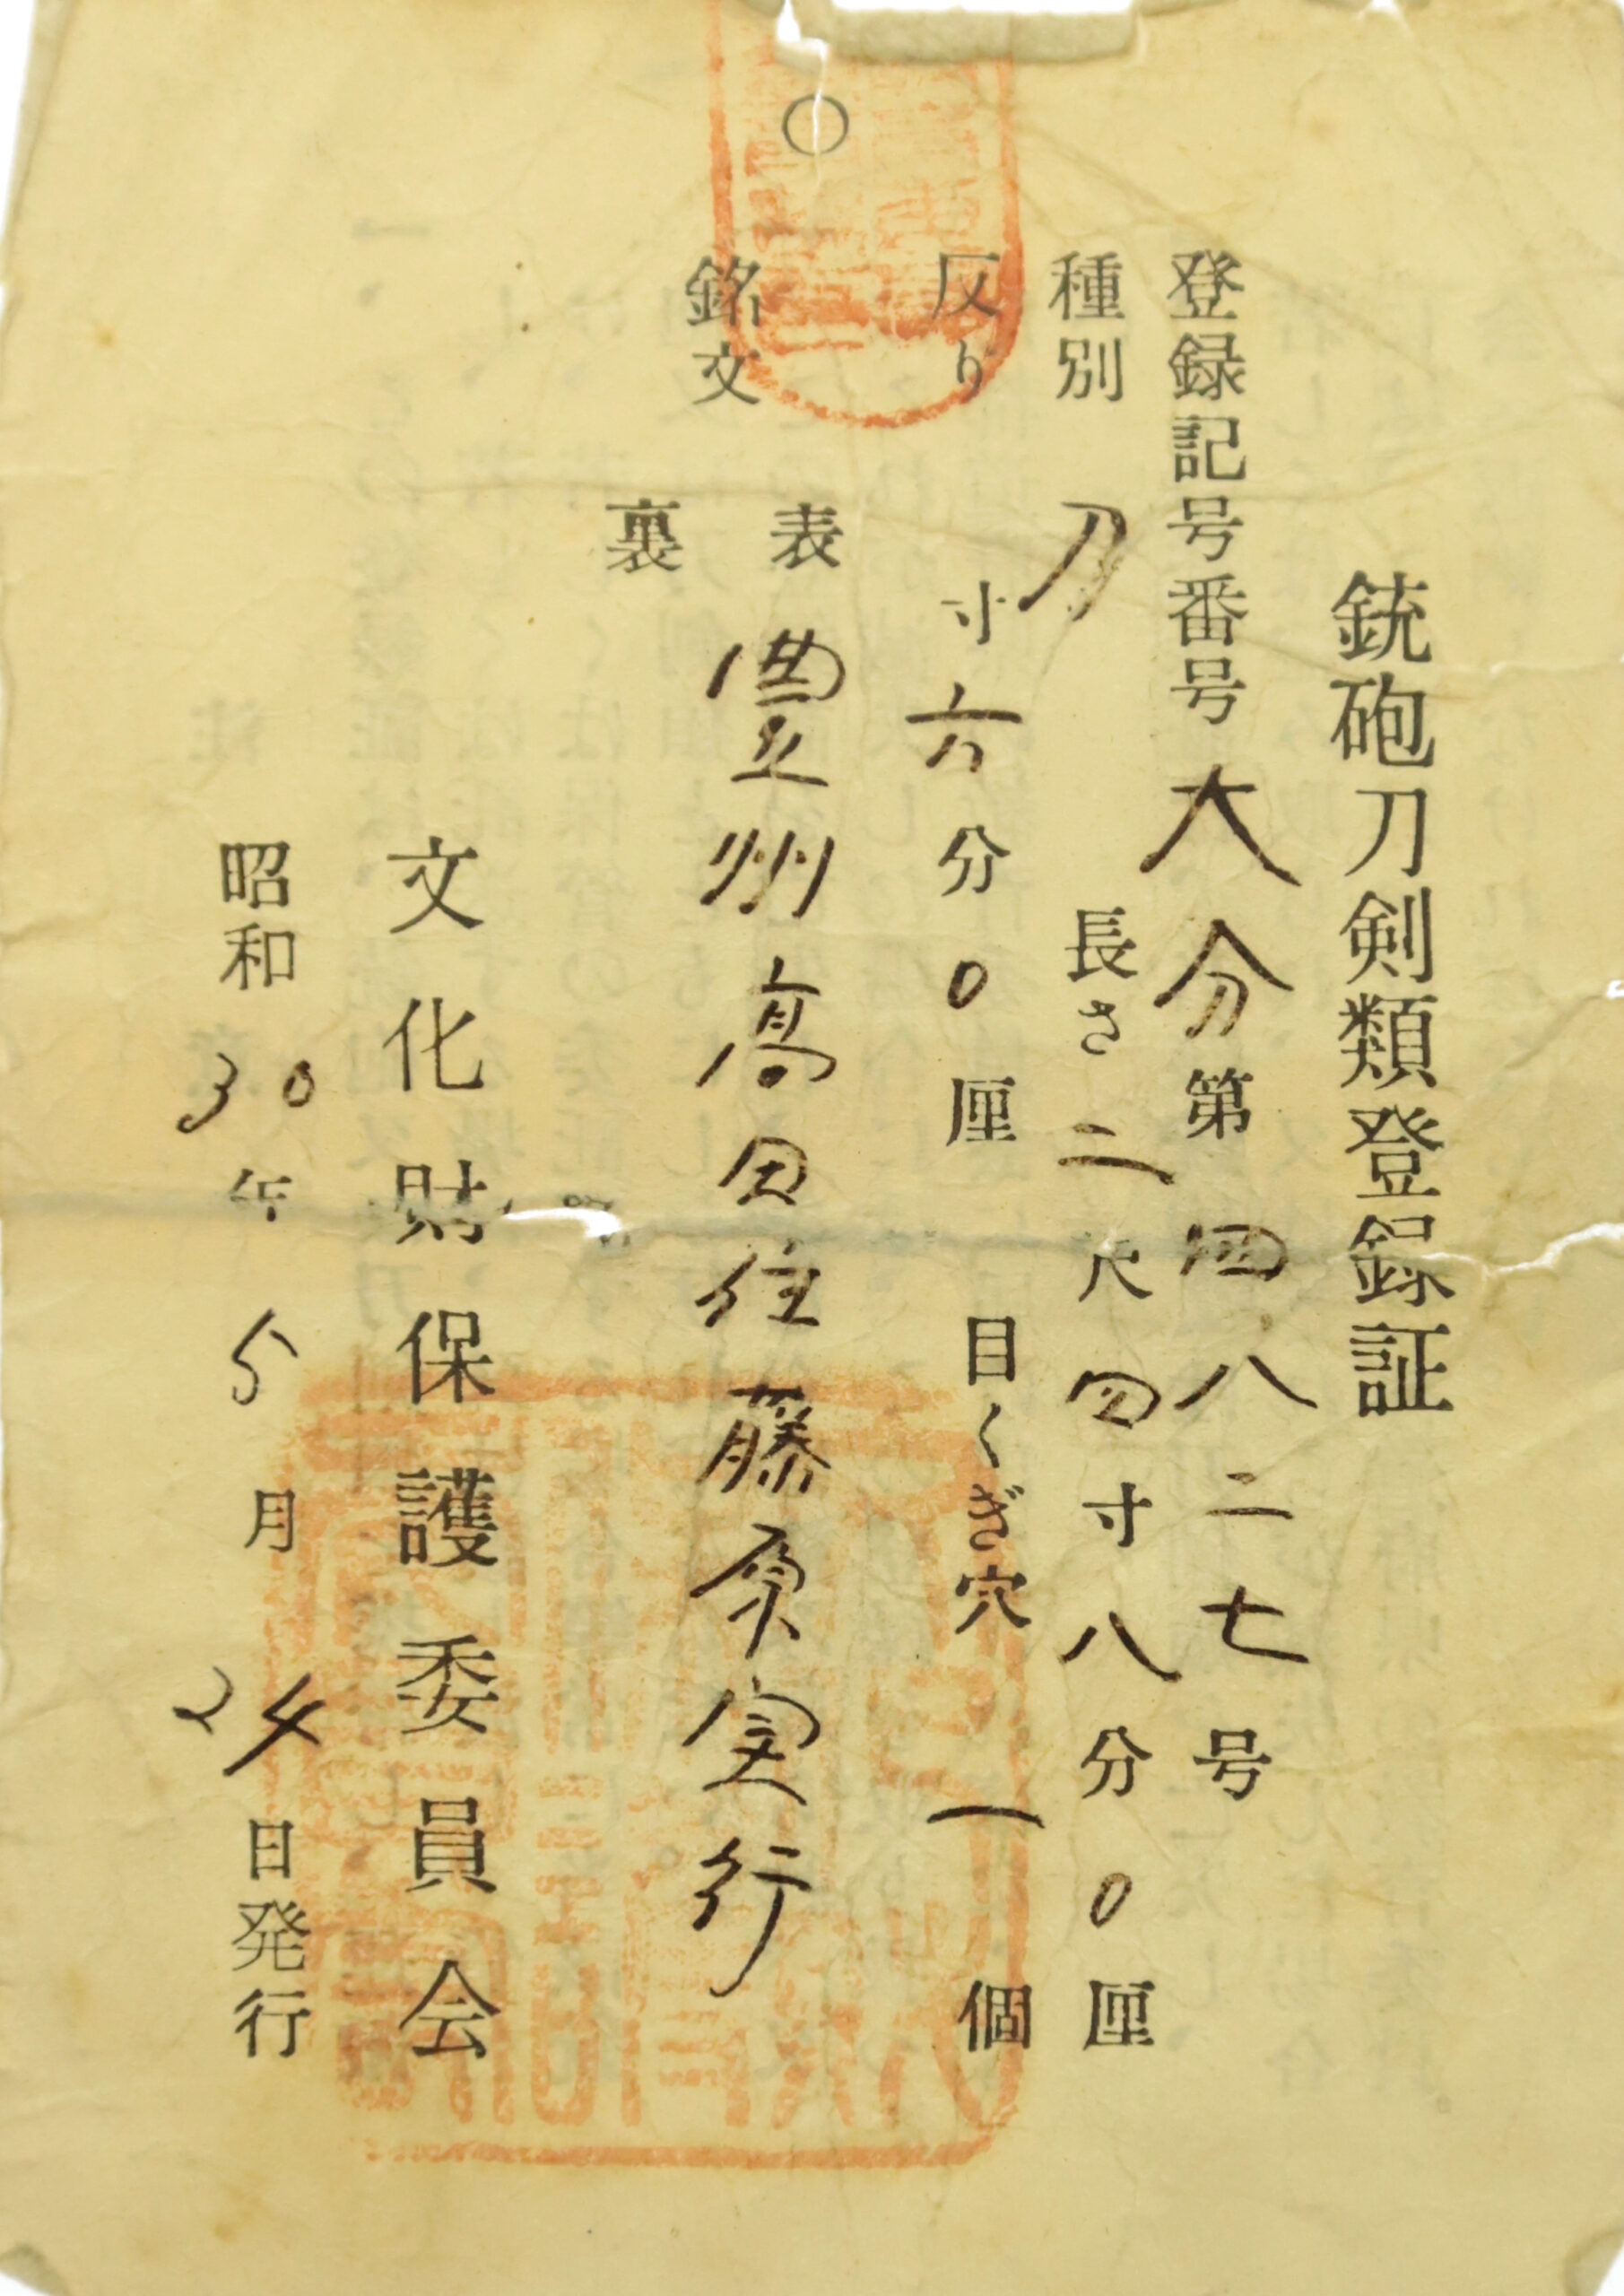 銃砲刀剣類登録証
登録記号番号 大分 第 四八二七 号
種別 刀 長さ 二 尺 四 寸 八 分 0 厘
反り 寸 六 分 0 厘 目くぎ穴 一 個
銘文 表 豊州高田住藤原実行
裏
文化財保護委員会
昭和 30 年 5 月 24 日発行